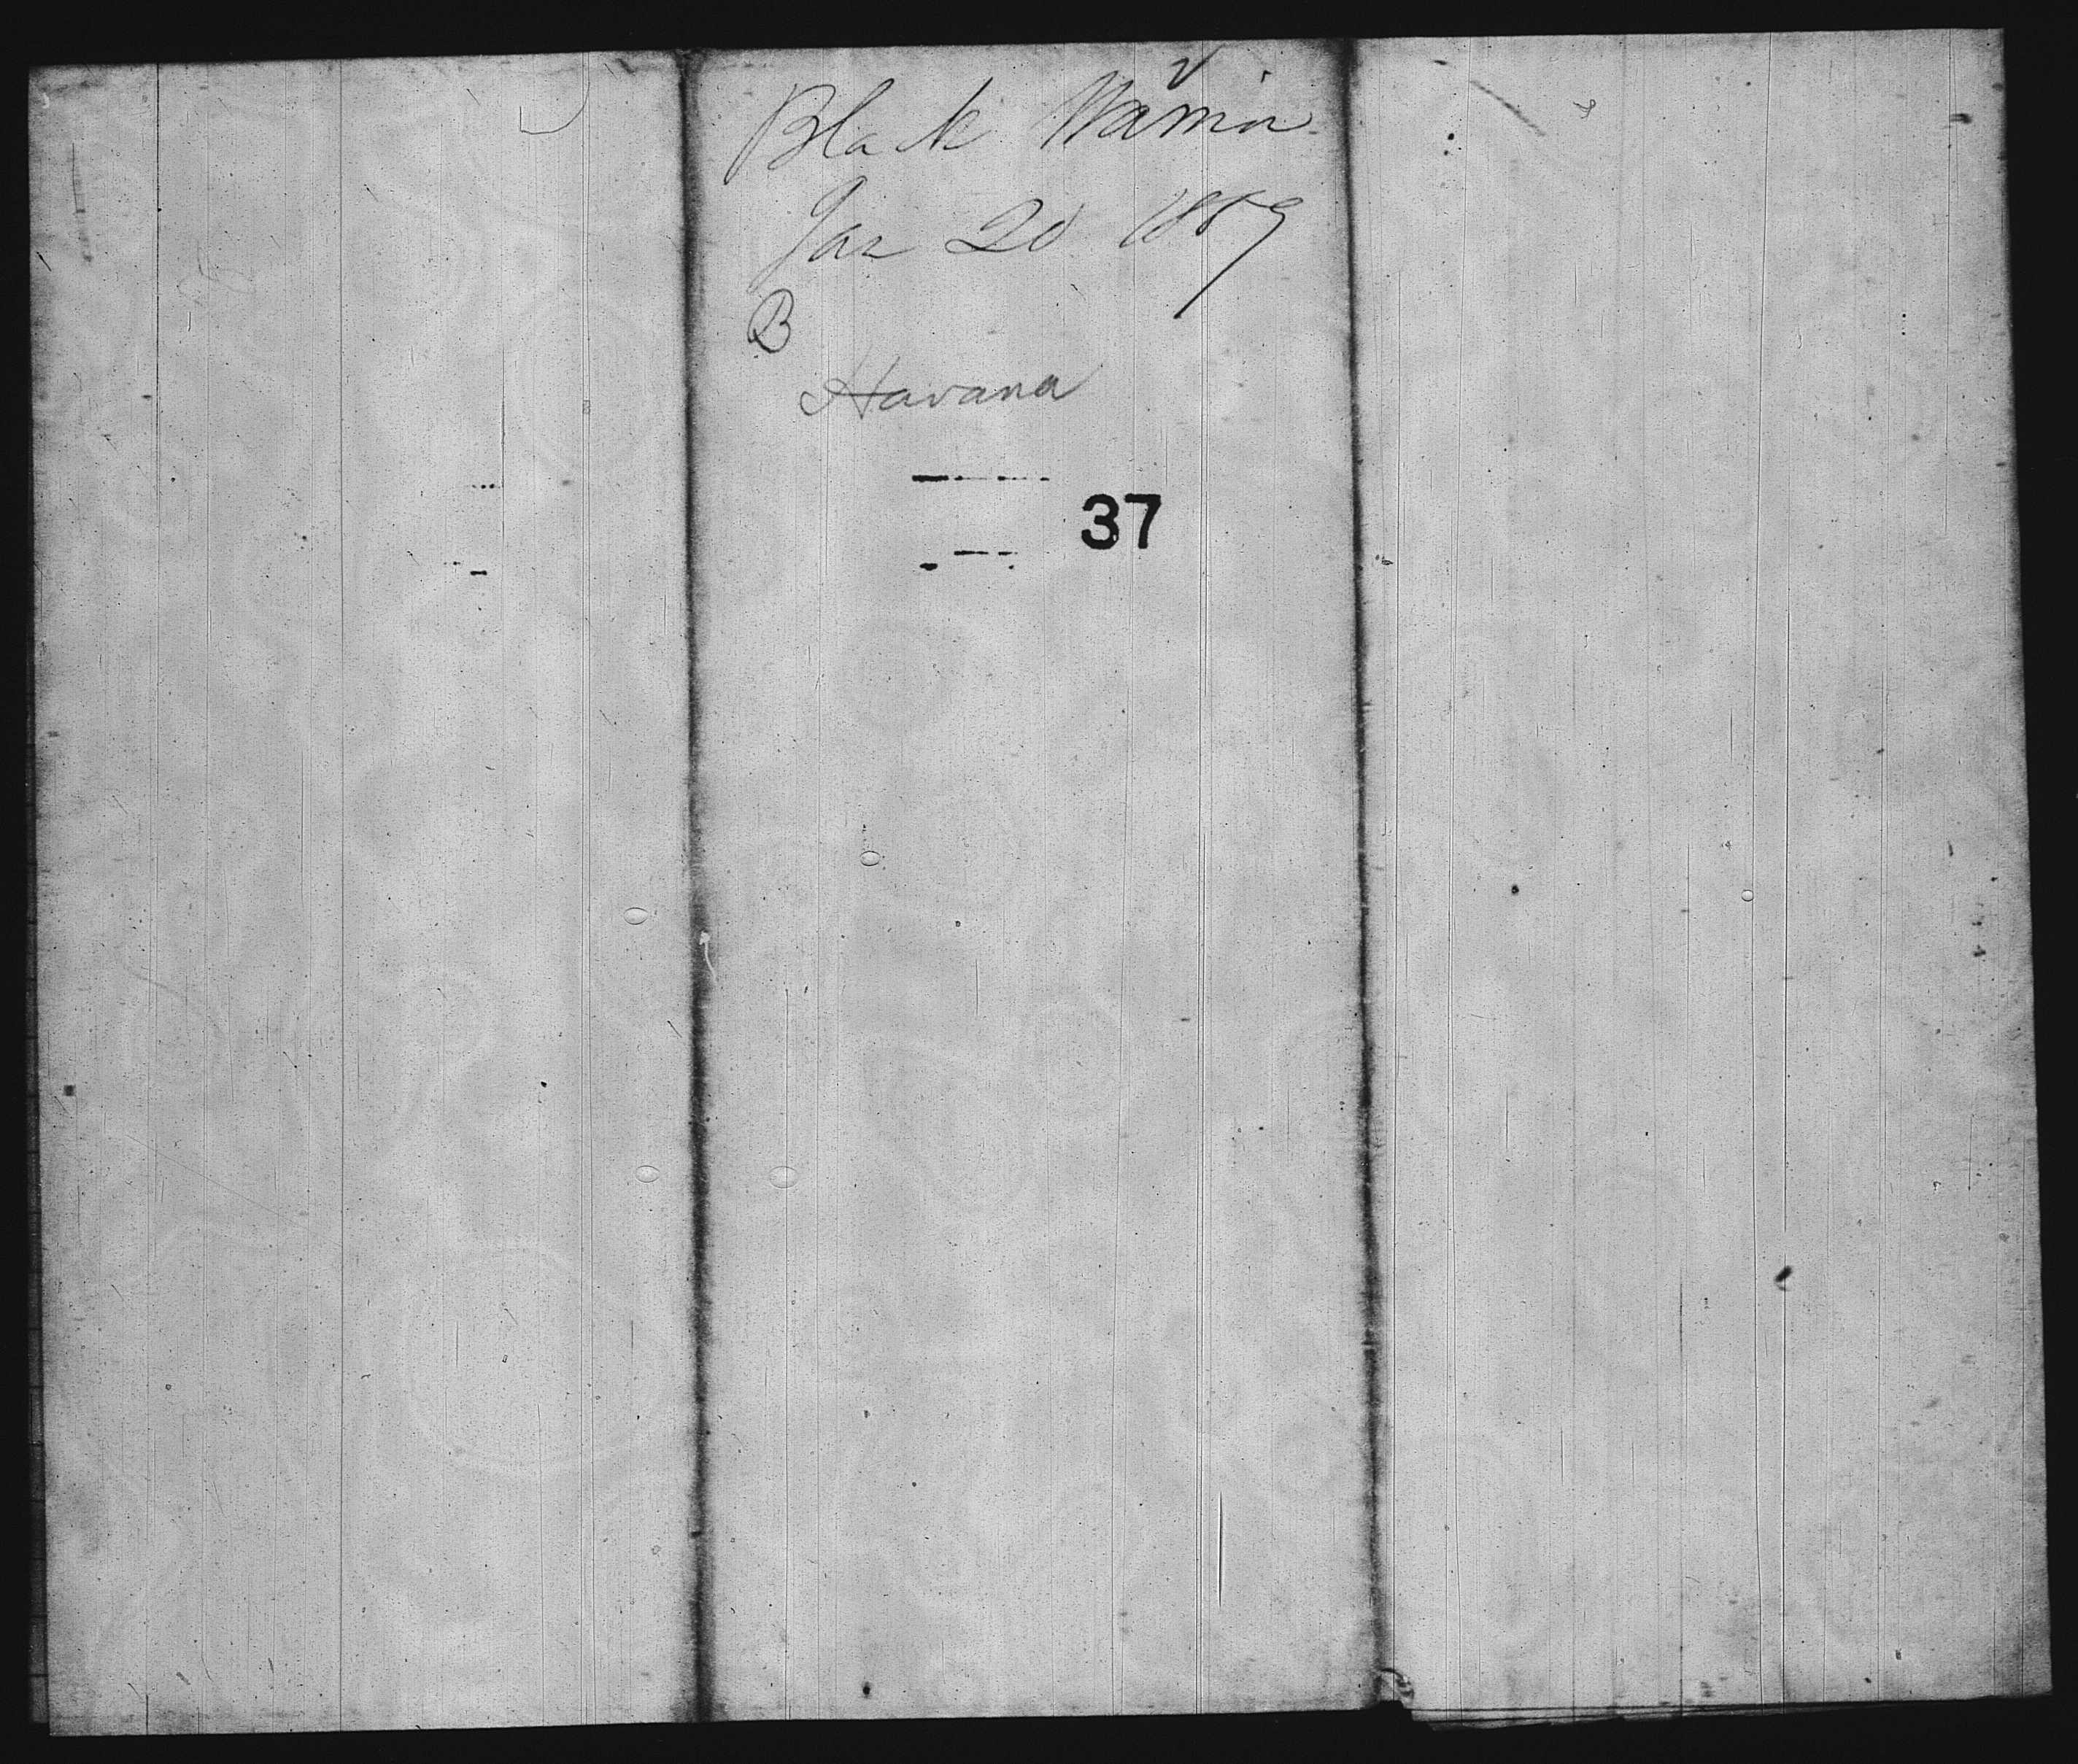 Black Warrior
Jan 20 1859
B
Havana
37